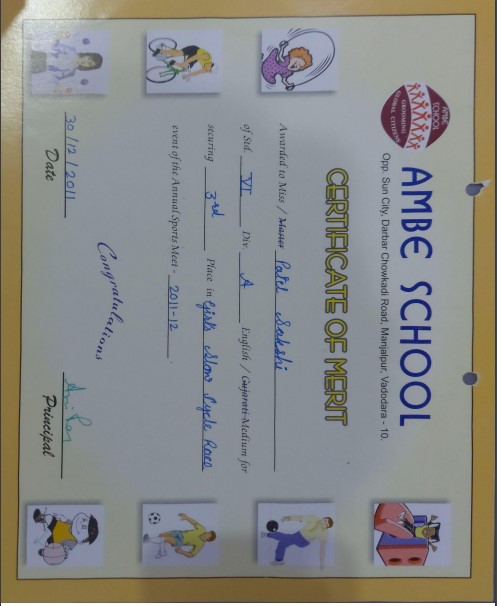 AMBE SCHOOL
GROOMING
GLOBAL CITIZENS
AMBE SCHOOL
Opp. Sun City, Darbar Chowkadi Road, Manjalpur, Vadodara - 10.
CERTIFICATE OF MERIT
Awarded to Miss / Master Patel Sakshi
of Std. VI Div. A English / Gujarati Medium for
securing 3rd Place in Girls Slow Cycle Race
event of the Annual Sports Meet - 2011-12.
Congratulations
30/12/2011
Date
Principal